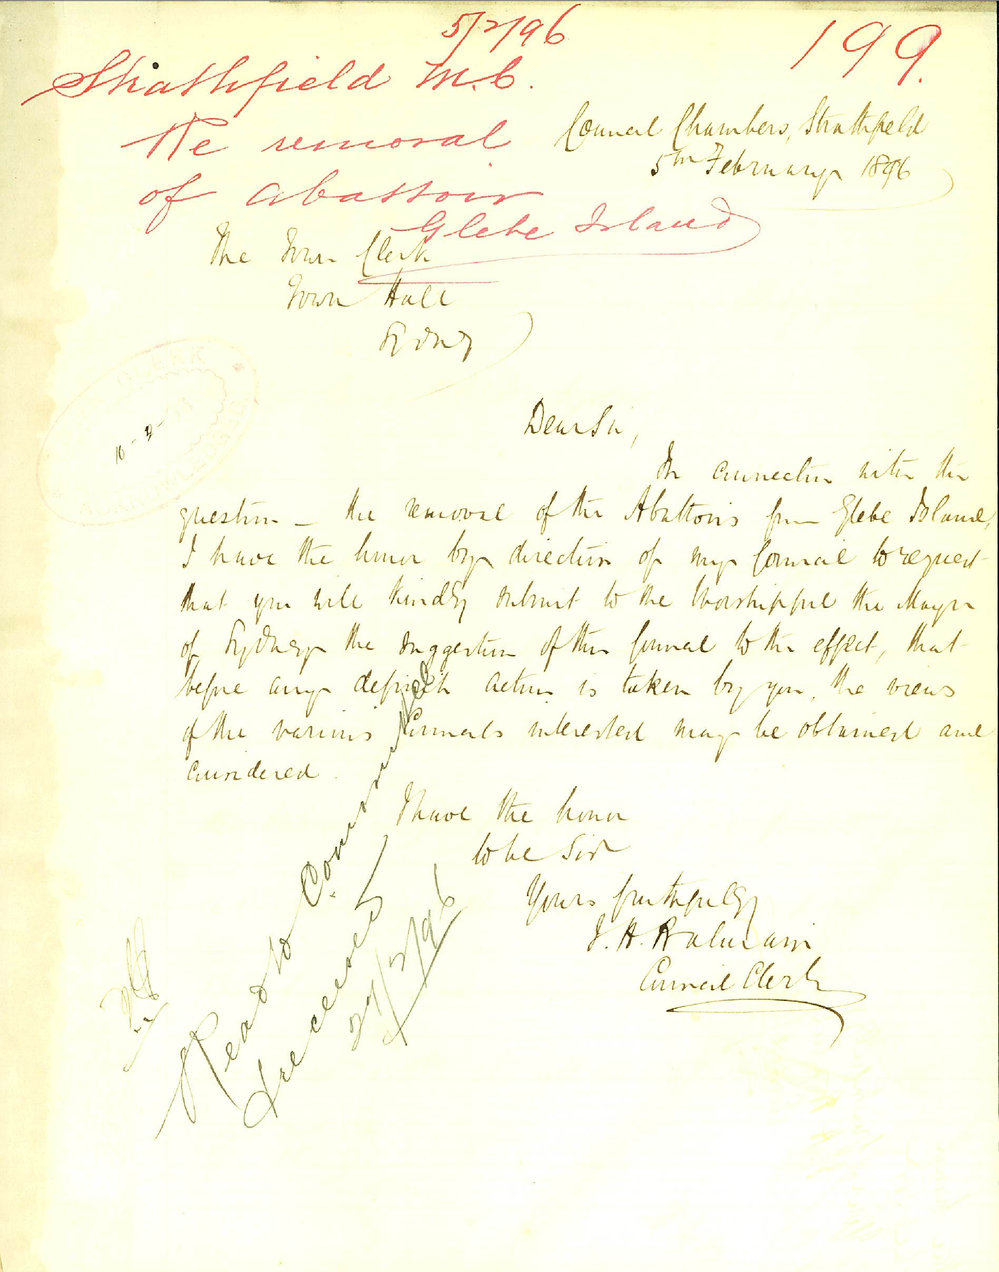 5/2/96
199.
Strathfield M.C.
Re removal
of abattoir
Glebe Island
Council Chambers, Strathfield
5th February 1896
The Town Clerk
Town Hall
Sydney
Dear Sir,
In connection with the
question - the removal of the Abattoirs from Glebe Island,
I have the honor by direction of my Council to request
that you will kindly submit to the Worshipful the Mayor
of Sydney the suggestion of this Council to the effect, that
before any definite action is taken by you, the views
of the various Councils interested may be obtained and
considered.
I have the honor
to be Sir
Yours faithfully
J. H.
Council Clerk
Read to Committee
&
received
27/2/96
10-2-